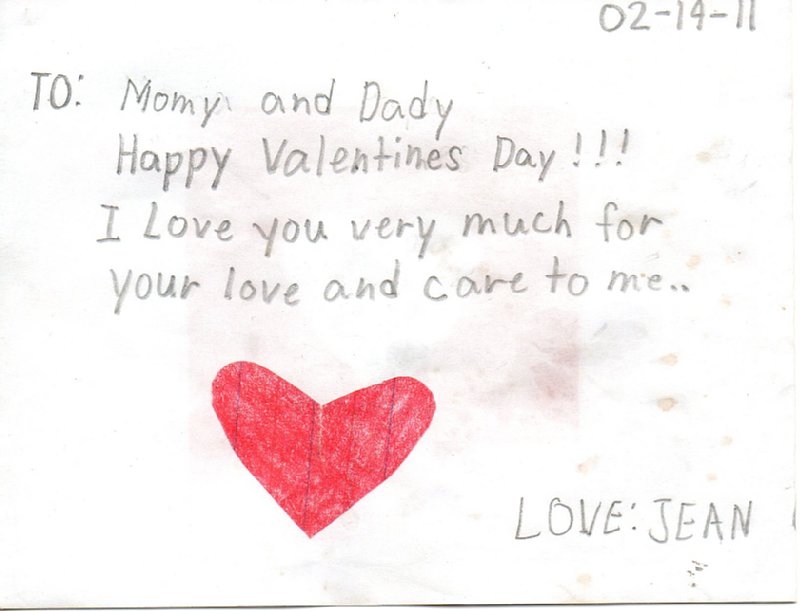 02-14-11
TO: Momy and Dady
Happy Valentines Day!!!
I Love you very much for
your love and care to me..
LOVE: JEAN